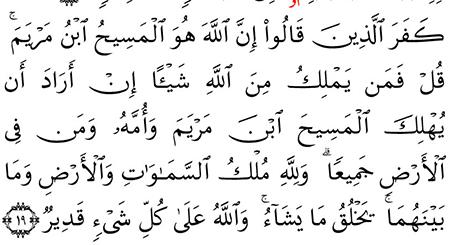 كَفَرَ ٱلَّذِينَ قَالُوٓا۟ إِنَّ ٱللَّهَ هُوَ ٱلْمَسِيحُ ٱبْنُ مَرْيَمَ ۚ
قُلْ فَمَن يَمْلِكُ مِنَ ٱللَّهِ شَيْـًٔا إِنْ أَرَادَ أَن
يُهْلِكَ ٱلْمَسِيحَ ٱبْنَ مَرْيَمَ وَأُمَّهُۥ وَمَن فِى
ٱلْأَرْضِ جَمِيعًا ۗ وَلِلَّهِ مُلْكُ ٱلسَّمَـٰوَٰتِ وَٱلْأَرْضِ وَمَا
بَيْنَهُمَا ۚ يَخْلُقُ مَا يَشَآءُ ۚ وَٱللَّهُ عَلَىٰ كُلِّ شَىْءٍ قَدِيرٌ ﴿١٩﴾